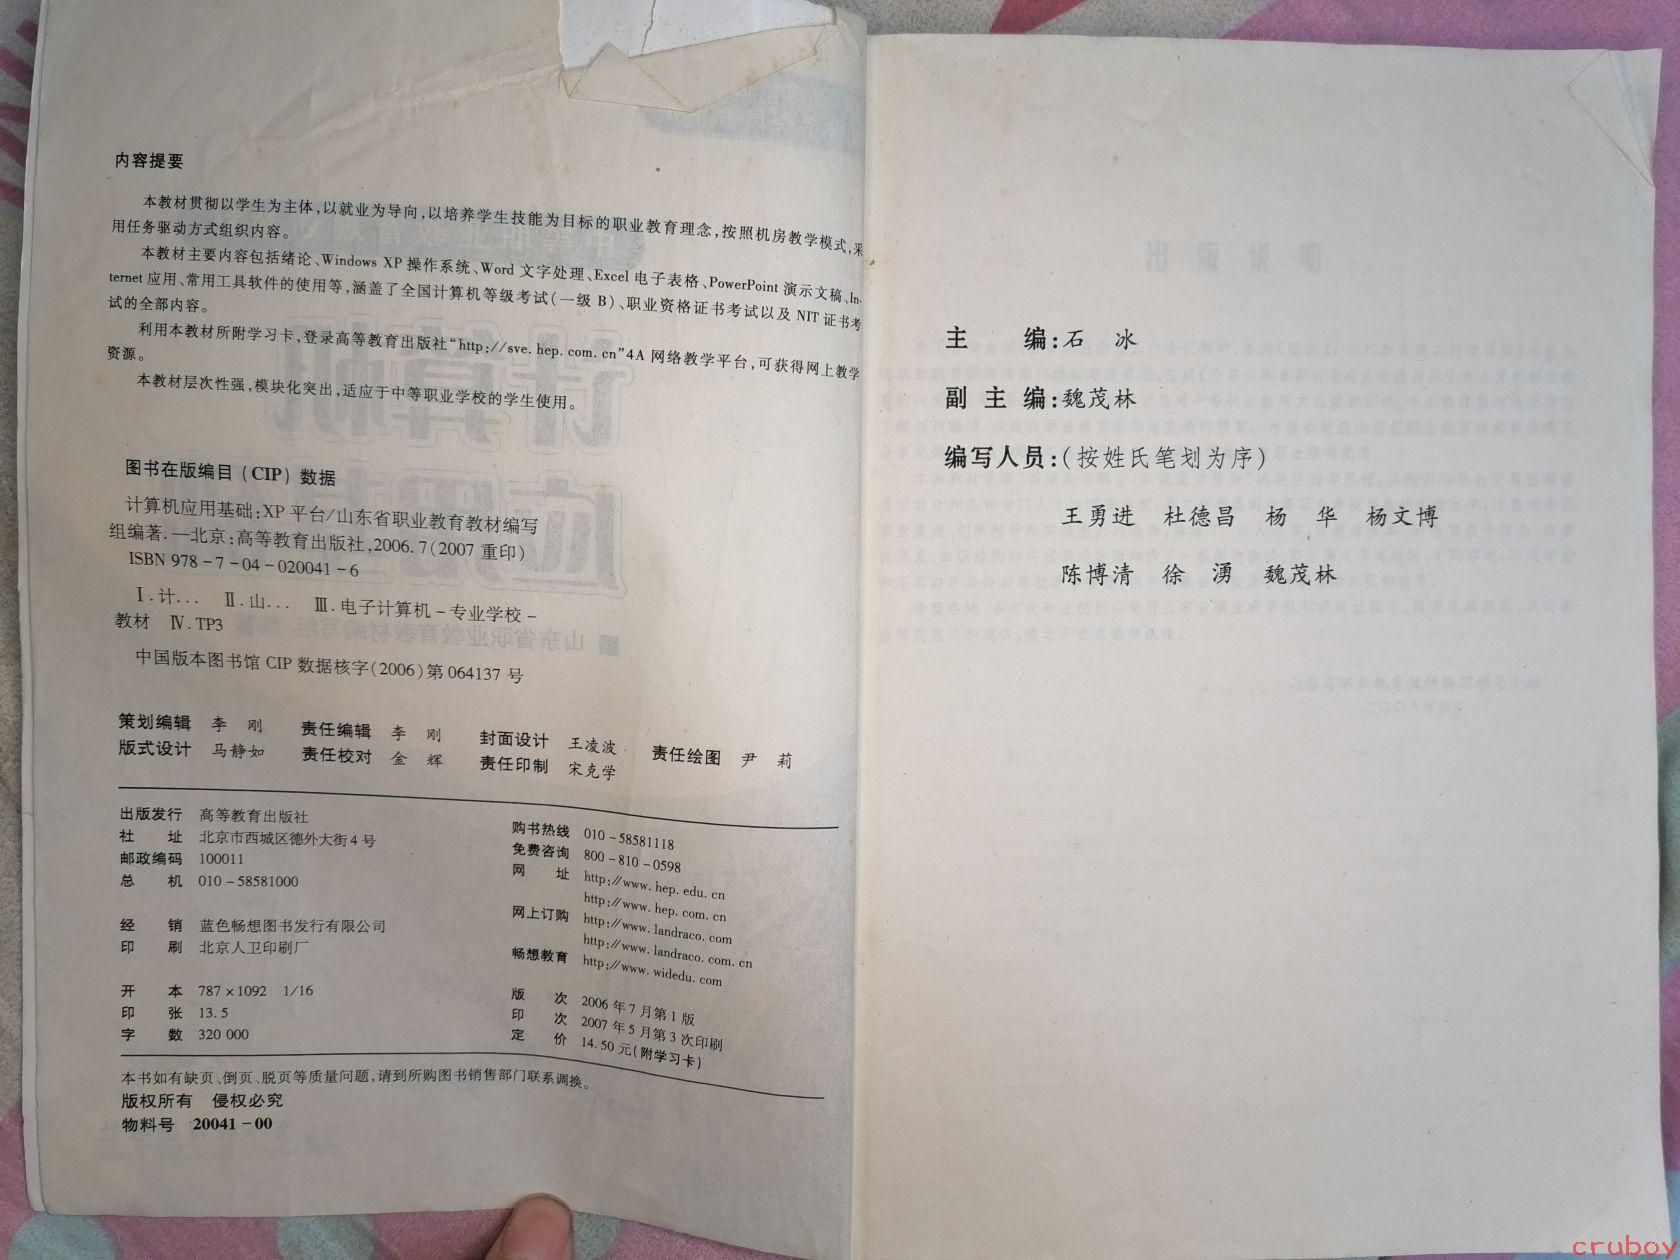 内容提要
本教材贯彻以学生为主体,以就业为导向,以培养学生技能为目标的职业教育理念,按照机房教学模式,采
用任务驱动方式组织内容。
本教材主要内容包括绪论、Windows XP 操作系统、Word 文字处理、Excel 电子表格、PowerPoint 演示文稿、In-
ternet 应用、常用工具软件的使用等,涵盖了全国计算机等级考试(一级 B)、职业资格证书考试以及 NIT 证书考
试的全部内容。
利用本教材所附学习卡,登录高等教育出版社“http://sve.hep.com.cn”4A 网络教学平台,可获得网上教学
资源。
本教材层次性强,模块化突出,适应于中等职业学校的学生使用。
图书在版编目(CIP)数据
计算机应用基础:XP 平台/山东省职业教育教材编写
组编著.—北京:高等教育出版社,2006.7(2007 重印)
ISBN 978-7-04-020041-6
Ⅰ.计… Ⅱ.山… Ⅲ.电子计算机-专业学校-
教材 Ⅳ.TP3
中国版本图书馆 CIP 数据核字(2006)第 064137 号
策划编辑 李 刚 责任编辑 李 刚 封面设计 王凌波 责任绘图 尹 莉
版式设计 马静如 责任校对 金 辉 责任印制 宋克学
出版发行 高等教育出版社
社 址 北京市西城区德外大街 4 号
邮政编码 100011
总 机 010-58581000
经 销 蓝色畅想图书发行有限公司
印 刷 北京人卫印刷厂
开 本 787×1092 1/16
印 张 13.5
字 数 320 000
购书热线 010-58581118
免费咨询 800-810-0598
网 址 http://www.hep.edu.cn
http://www.hep.com.cn
网上订购 http://www.landraco.com
http://www.landraco.com.cn
畅想教育 http://www.widedu.com
版 次 2006 年 7 月第 1 版
印 次 2007 年 5 月第 3 次印刷
定 价 14.50 元(附学习卡)
本书如有缺页、倒页、脱页等质量问题,请到所购图书销售部门联系调换。
版权所有 侵权必究
物料号 20041-00
主 编:石 冰
副 主 编:魏茂林
编写人员:(按姓氏笔划为序)
王勇进 杜德昌 杨 华 杨文博
陈博清 徐 湧 魏茂林
cruboy